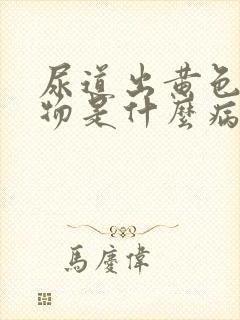 尿道出黄色
物是什麼病
馬慶偉